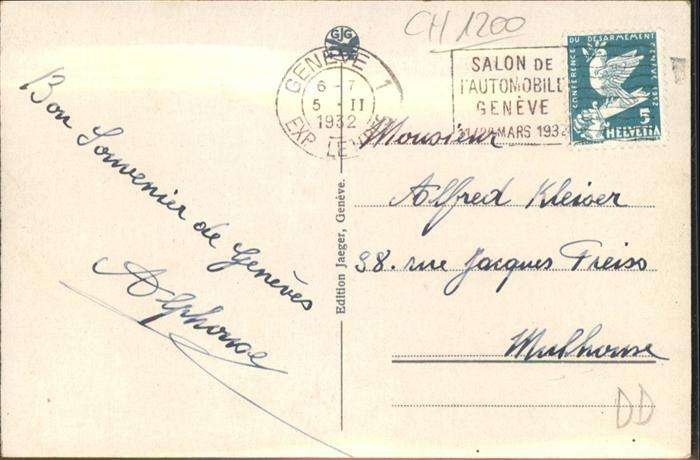 Bon Souvenir de Genèves
Alphonse
Edition Jaeger, Genève.
GJG
CH 1200
GENÈVE 1
6-7
5 · II
1932
EXP. LE
SALON DE
L'AUTOMOBILE
GENÈVE
MARS 1932
CONFÉRENCE DU DÉSARMEMENT
GENÈVE 1932
5
HELVETIA
Monsieur
Alfred Kleiser
38. rue Jacques Preiss
Mulhouse
DD